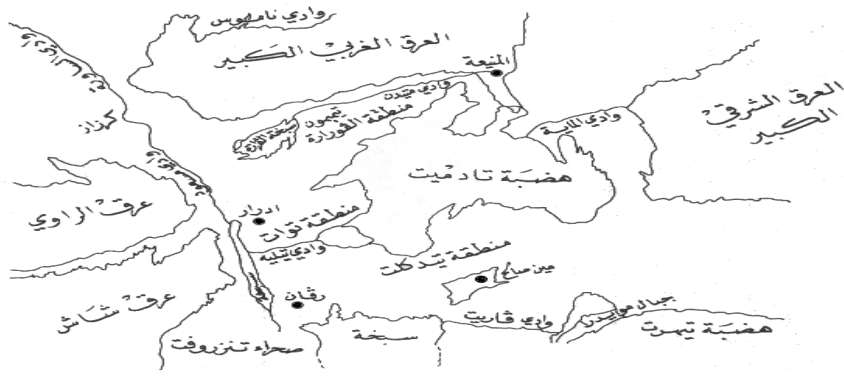 وادي ناموس
العرق الغربي الكبير
المنيعة
العرق الشرقي
الكبير
وادي الماية
وادي متيدن
تيميمون
منطقة القورارة
كرزاز
هضبة تادميت
عرق الراوي
ادرار
منطقة توات
وادي تيليه
منطقة تيدكلت
عين صالح
عرق شاش
رڤان
صحراء تنزروفت
سبخة
وادي قاريت
جبال مويدرن
هضبة تيمرت